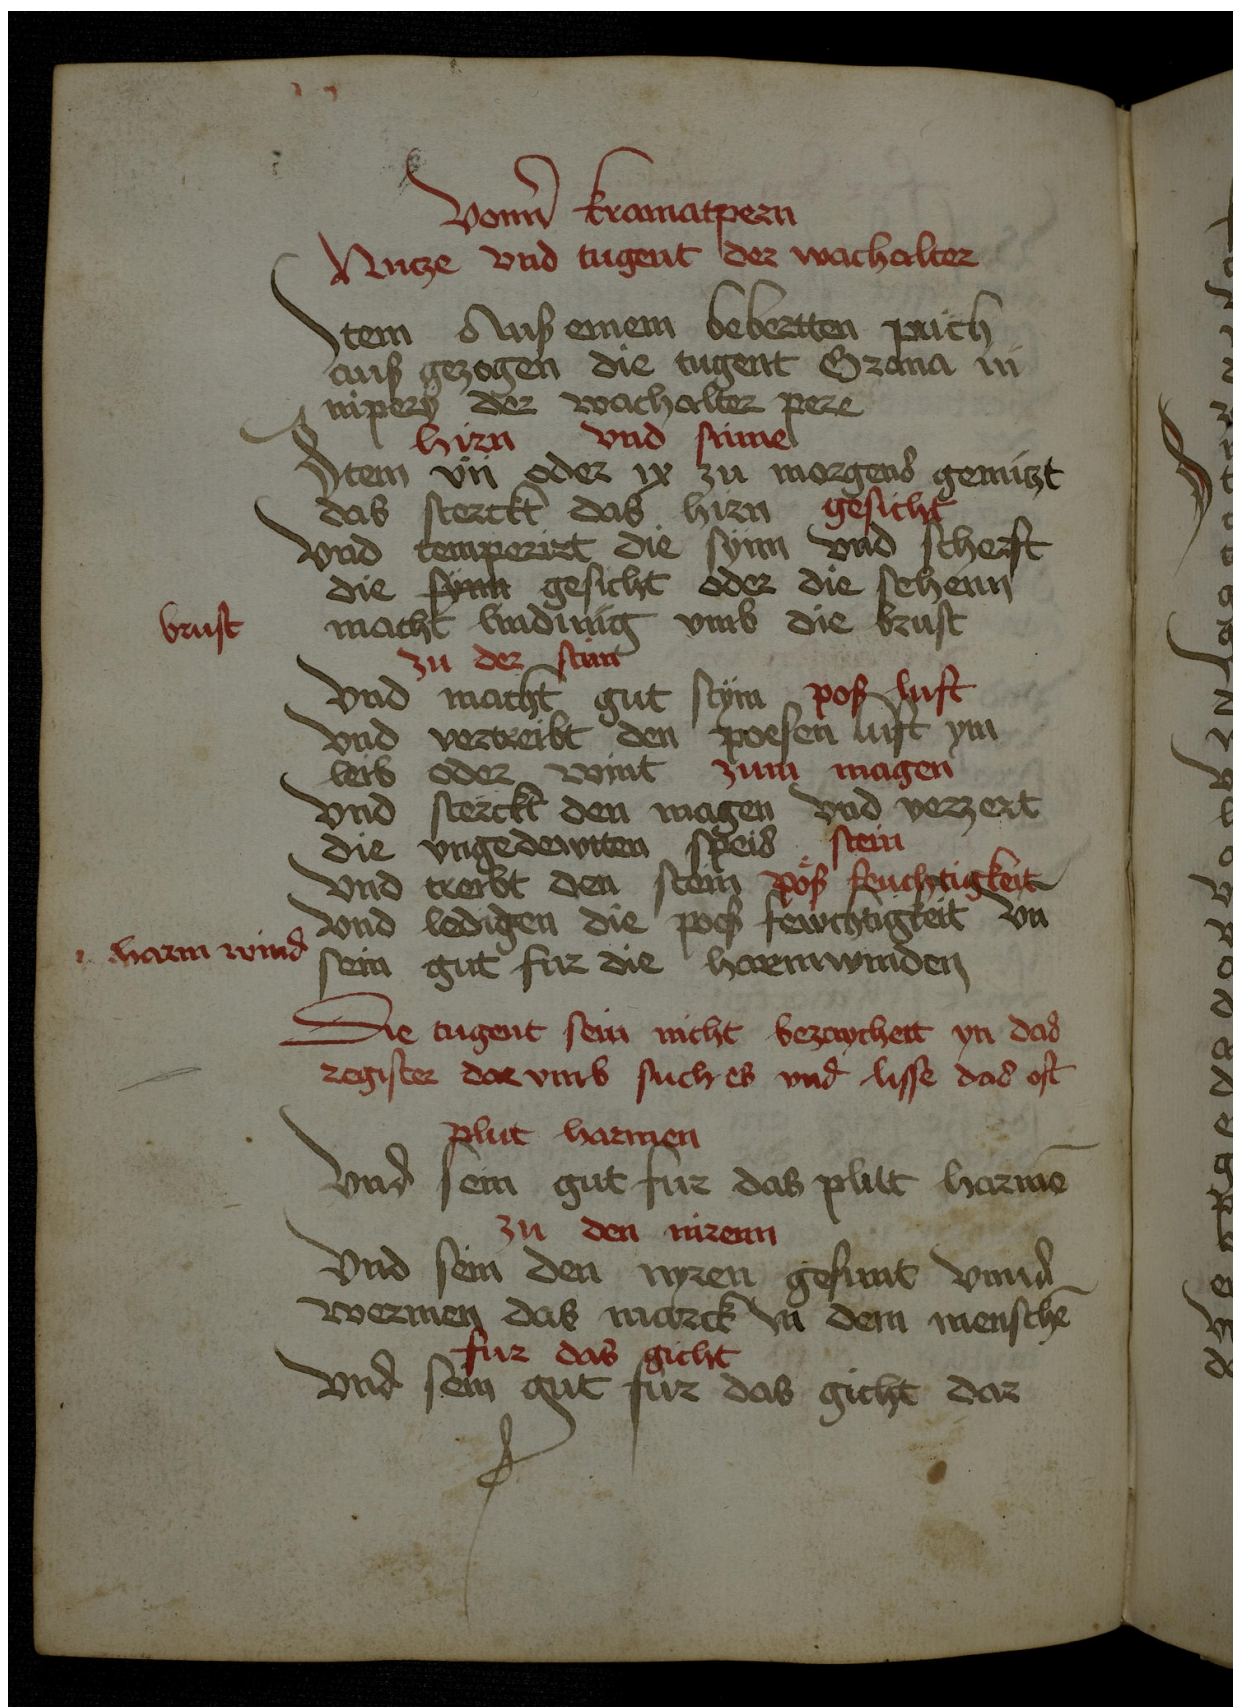 Vonn kramatpern
Nutze vnd tugent der wachalter
Item Auß einem bebertten puch
auß gezogen die tugent Grana iu
nipery der wachalter pere
hirn vnd sinne
Item vii oder ix zu morgens genutzt
das sterckt das hirn gesicht
vnd temperirt die synn vnd scherft
die synn gesicht oder die sehenn
brust macht lindinig vmb die brust
zu der stim
vnd macht gut stym poß luft
vnd vertreibt den poesen luft ym
leib oder wint zum magen
vnd sterckt den magen vnd verzert
die vngedewten speis stein
vnd treibt den stein pöß feuchtigkeit
vnd ledigen die poß fewchtigkeit vn
harm wind sein gut fur die harmwinden
Die tugent sein nicht bezaychent yn das
register dar vmb such es vnd lisse das oft
plut harmen
vnd sein gut fur das plut harmē
zu den nirenn
vnd sein den nyren gesunt vnnd
wermen das marck in dem menschē
fur das gicht
vnd sein gut fur das gicht dar